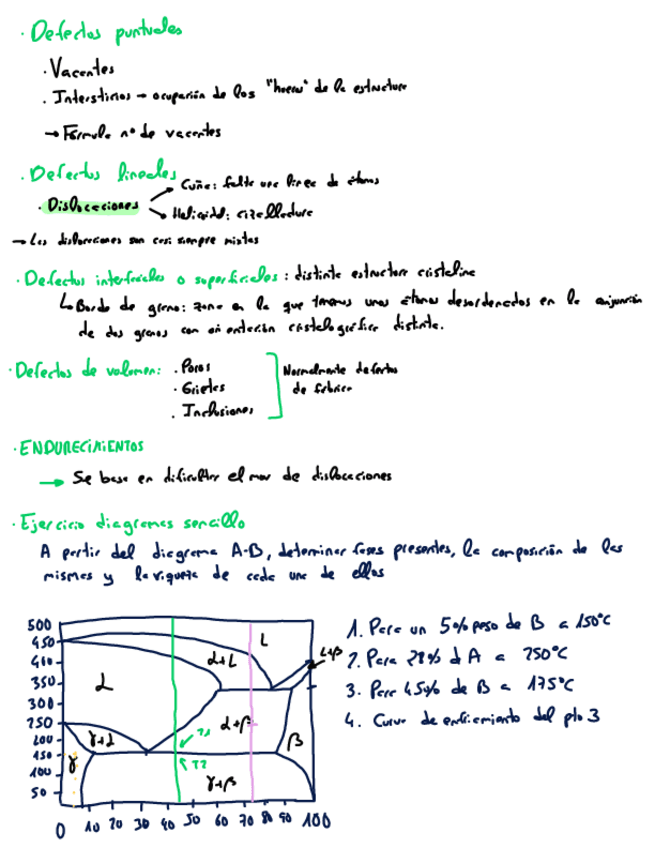 · Defectos puntuales
· Vacantes
· Intersticios → ocupación de los "huecos" de la estructura
→ Fórmula nº de vacantes
· Defectos lineales
· Dislocaciones
Cuña: falta una línea de átomos
Helicoidal: cizalladura
→ Las dislocaciones son casi siempre mixtas
· Defectos interfaciales o superficiales: distinta estructura cristalina
↳ Borde de grano: zona en la que tenemos unos átomos desordenados en la conjunción
de dos granos con orientación cristalográfica distinta.
· Defectos de volumen:
· Poros
· Grietas
· Inclusiones
Normalmente defectos
de fábrica
· ENDURECIMIENTOS
→ Se basa en dificultar el mov de dislocaciones
· Ejercicio diagramas sencillo
A partir del diagrama A-B, determinar fases presentes, la composición de las
mismas y la riqueza de cada una de ellas
1. Para un 5% peso de B a 150°C
2. Para 28% d A a 250°C
3. Para 45% de B a 175°C
4. Curva de enfriamiento del pto 3
500
450
400
350
300
250
200
150
100
50
L
α+L
L+β
α
α+β
γ+α
β
γ
γ+β
T1
T2
0 10 20 30 40 50 60 70 80 90 100